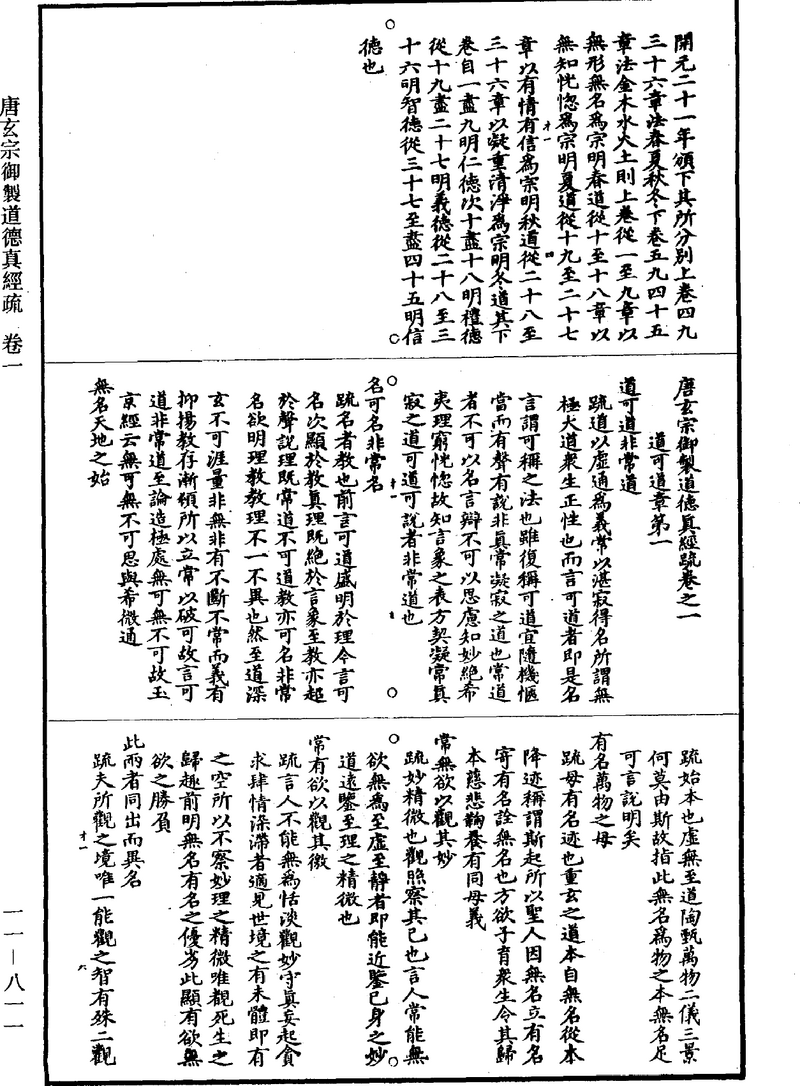 唐玄宗御製道德真經疏 卷一
一一—八一一
開元二十一年頒下其所分別上卷四九
三十六章法春夏秋冬下卷五九四十五
章法金木水火土則上卷從一至九章以
無形無名為宗明春道從十至十八章以
無知恍惚為宗明夏道從十九至二十七
章以有情有信為宗明秋道從二十八至
三十六章以凝重清淨為宗明冬道其下
卷自一盡九明仁德次十盡十八明禮德
從十九盡二十七明義德從二十八至三
十六明智德從三十七至盡四十五明信
德也
唐玄宗御製道德真經疏卷之一
道可道章第一
道可道非常道
疏道以虛通為義常以湛寂得名所謂無
極大道衆生正性也而言可道者即是名
言謂可稱之法也雖復稱可道宜隨機愜
當而有聲有說非真常凝寂之道也常道
者不可以名言辯不可以思慮知妙絕希
夷理窮恍惚故知言象之表方契凝常真
寂之道可道可說者非常道也
名可名非常名
疏名者教也前言可道盛明於理今言可
名次顯於教真理既絕於言象至教亦超
於聲說理既常道不可道教亦可名非常
名欲明理教教理不一不異也然至道深
玄不可涯量非無非有不斷不常而義有
抑揚教存漸頓所以立常以破可故言可
道非常道至論造極處無可無不可故玉
京經云無可無不可思與希微通
無名天地之始
疏始本也虛無至道陶甄萬物二儀三景
何莫由斯故指此無名為物之本無名足
可言說明矣
有名萬物之母
疏母有名迹也重玄之道本自無名從本
降迹稱謂斯起所以聖人因無名立有名
寄有名詮無名也方欲子育衆生令其歸
本慈悲鞠養有同母義
常無欲以觀其妙
疏妙精微也觀照察其已也言人常能無
欲無為至虛至靜者即能近鑒已身之妙
道遠鑒至理之精微也
常有欲以觀其徼
疏言人不能無為恬淡觀妙守真妄起貪
求肆情染滯者適見世境之有未體即有
之空所以不察妙理之精微唯覩死生之
歸趣前明無名有名之優劣此顯有欲無
欲之勝負
此兩者同出而異名
疏夫所觀之境唯一能觀之智有殊二觀